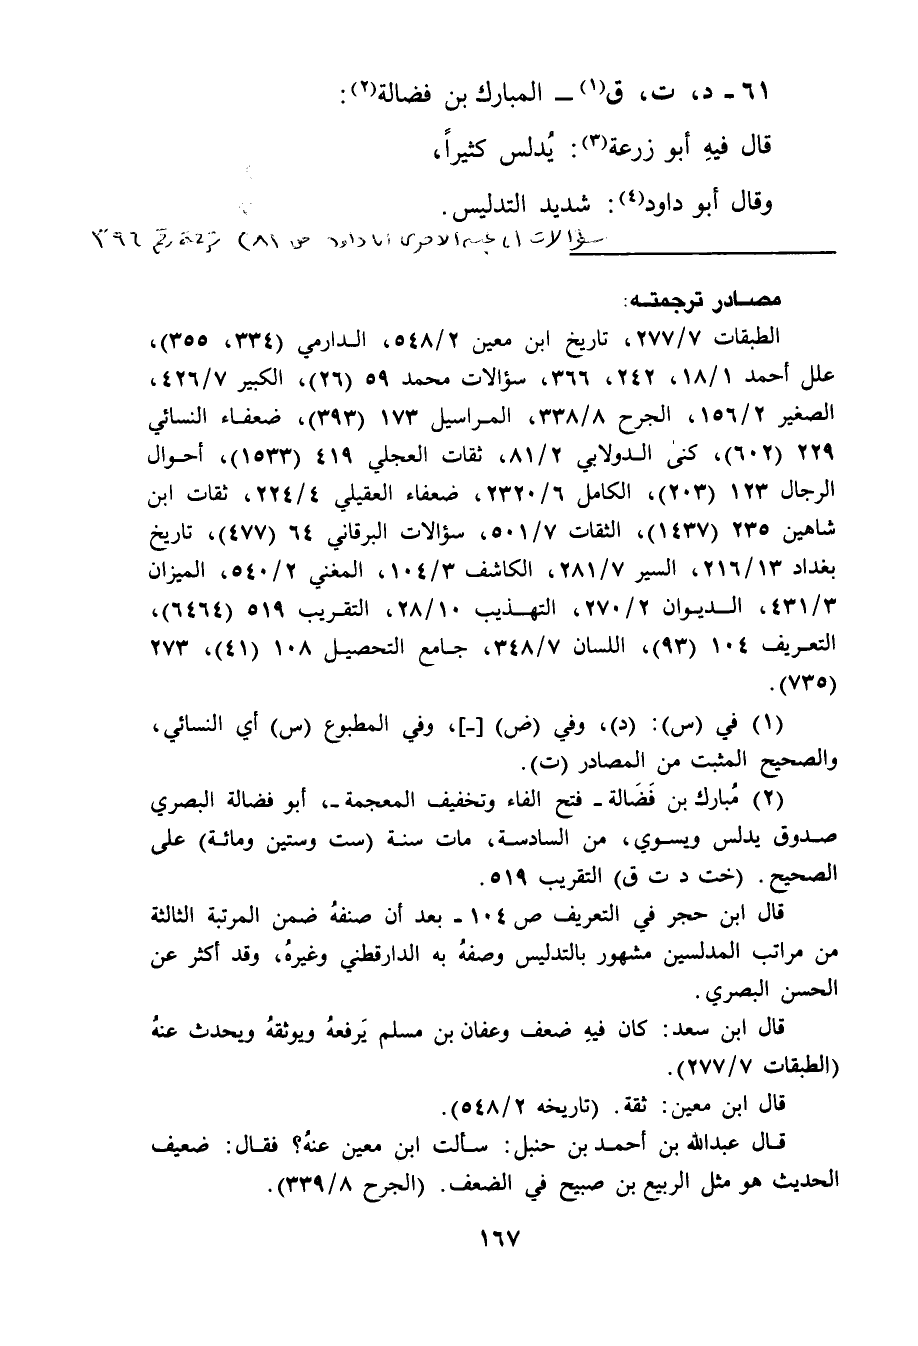 ٦١ - د، ت، ق(١) - المبارك بن فضالة(٢):
قال فيهِ أبو زرعة(٣): يُدلس كثيراً،
وقال أبو داود(٤): شديد التدليس.
سؤالات الآجري أبا داود ص ٨١) ترجمة رقم ٣٩٦
مصـادر ترجمتـه:
الطبقات ٢٧٧/٧، تاريخ ابن معين ٥٤٨/٢، الـدارمي (٣٣٤، ٣٥٥)،
علل أحمد ١٨/١، ٢٤٢، ٣٦٦، سؤالات محمد ٥٩ (٢٦)، الكبير ٤٢٦/٧،
الصغير ١٥٦/٢، الجرح ٣٣٨/٨، المـراسيل ١٧٣ (٣٩٣)، ضعفـاء النسائي
٢٢٩ (٦٠٢)، كنىٰ الـدولابي ٨١/٢، ثقات العجلي ٤١٩ (١٥٣٣)، أحـوال
الرجال ١٢٣ (٢٠٣)، الكامل ٢٣٢٠/٦، ضعفاء العقيلي ٢٢٤/٤، ثقات ابن
شاهين ٢٣٥ (١٤٣٧)، الثقات ٥٠١/٧، سؤالات البرقاني ٦٤ (٤٧٧)، تاريخ
بغداد ٢١٦/١٣، السير ٢٨١/٧، الكاشف ١٠٤/٣، المغني ٥٤٠/٢، الميزان
٤٣١/٣، الـديـوان ٢٧٠/٢، التهـذيب ٢٨/١٠، التقـريب ٥١٩ (٦٤٦٤)،
التعـريف ١٠٤ (٩٣)، اللسان ٣٤٨/٧، جـامع التحصيـل ١٠٨ (٤١)، ٢٧٣
(٧٣٥).
(١) في (س): (د)، وفي (ض) [-]، وفي المطبوع (س) أي النسائي،
والصحيح المثبت من المصادر (ت).
(٢) مُبارك بن فَضَالة - فتح الفاء وتخفيف المعجمة -، أبو فضالة البصري
صـدوق يدلس ويسـوي، من السادسـة، مات سنـة (ست وستين ومائـة) على
الصحيح. (خت د ت ق) التقريب ٥١٩.
قال ابن حجر في التعريف ص ١٠٤ - بعد أن صنفهُ ضمن المرتبة الثالثة
من مراتب المدلسين مشهور بالتدليس وصفهُ به الدارقطني وغيرهُ، وقد أكثر عن
الحسن البصري.
قال ابن سعد: كان فيهِ ضعف وعفان بن مسلم يَرفعهُ ويوثقهُ ويحدث عنهُ
(الطبقات ٢٧٧/٧).
قال ابن معين: ثقة. (تاريخه ٥٤٨/٢).
قـال عبدالله بن أحمـد بن حنبل: سـألت ابن معين عنهُ؟ فقـال: ضعيف
الحديث هو مثل الربيع بن صبيح في الضعف. (الجرح ٣٣٩/٨).
١٦٧